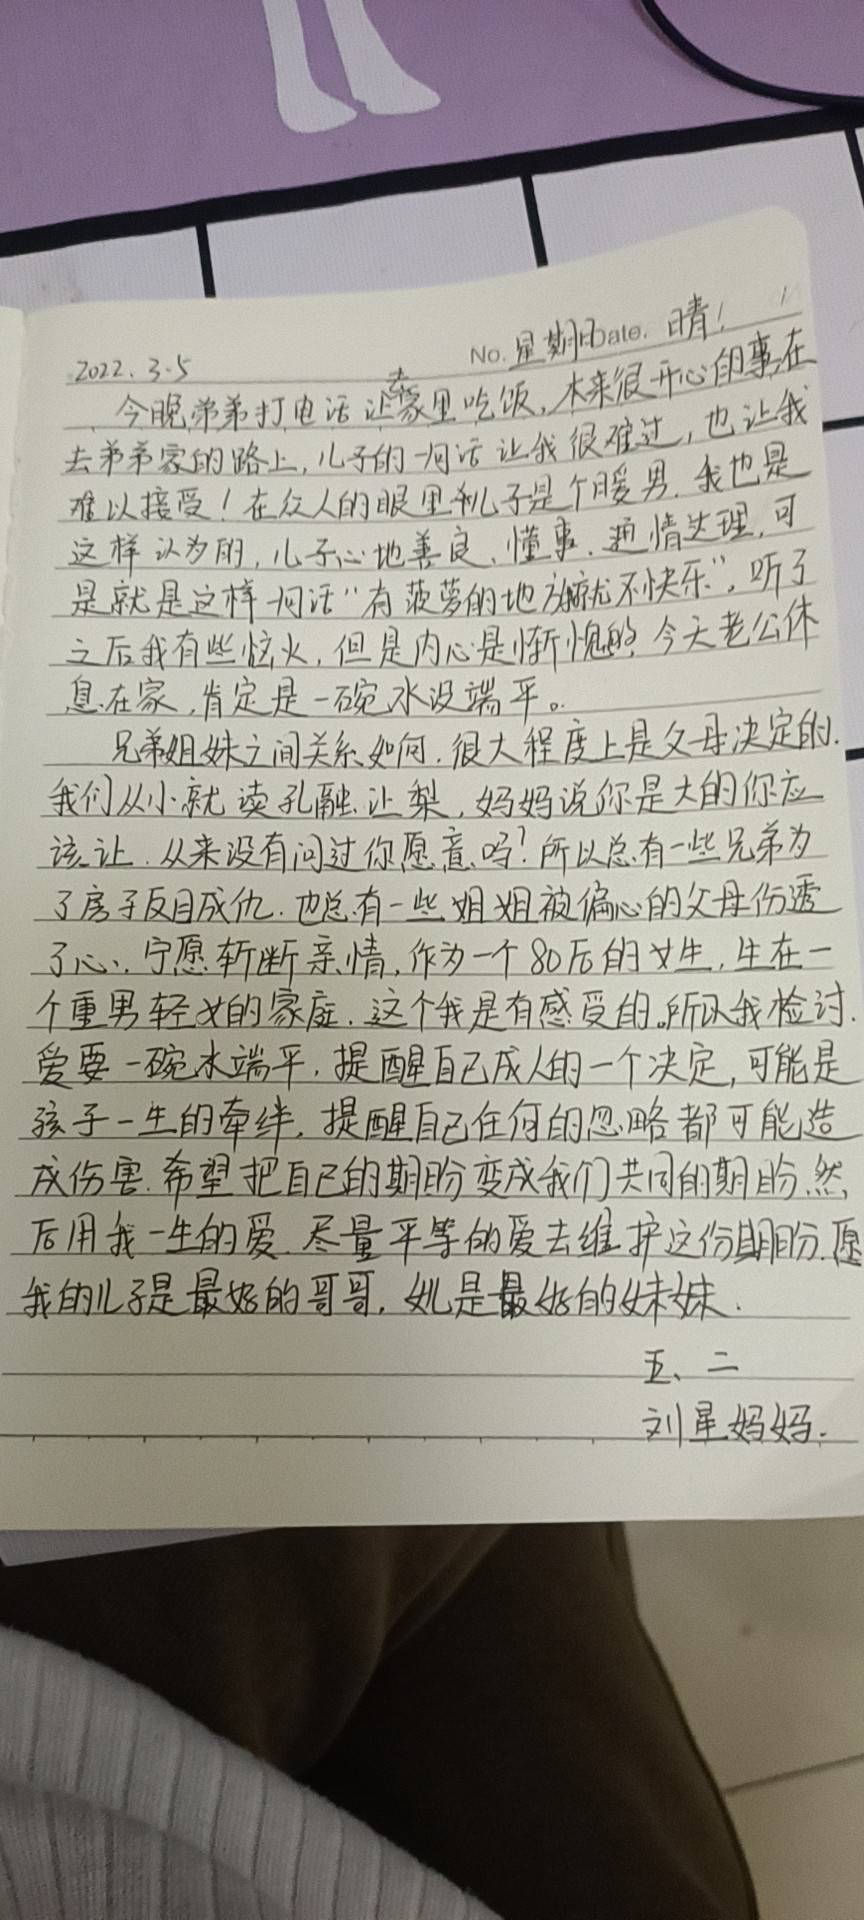 2022.3.5 No. 星期日 Date. 晴!
今晚,弟弟打电话让去家里吃饭,本来很开心的事,在
去弟弟家的路上,儿子的一句话让我很难过,也让我
难以接受!在众人的眼里我儿子是个暖男.我也是
这样认为的,儿子心地善良、懂事、通情达理,可
是就是这样一句话“有菠萝的地方我就不快乐”,听了
之后我有些恼火,但是内心是惭愧的,今天老公休
息在家,肯定是一碗水没端平。
兄弟姐妹之间关系如何.很大程度上是父母决定的.
我们从小就读孔融让梨,妈妈说你是大的你应
该让.从来没有问过你愿意吗?所以总有一些兄弟为
了房子反目成仇.也总有一些姐姐被偏心的父母伤透
了心、宁愿斩断亲情,作为一个80后的女生,生在一
个重男轻女的家庭.这个我是有感受的。所以我检讨.
爱要一碗水端平.提醒自己成人的一个决定,可能是
孩子一生的牵绊.提醒自己任何的忽略都可能造
成伤害.希望把自己的期盼变成我们共同的期盼.然
后用我一生的爱.尽量平等的爱去维护这份期盼.愿
我的儿子是最好的哥哥,女儿是最好的妹妹.
五、二
刘星妈妈.